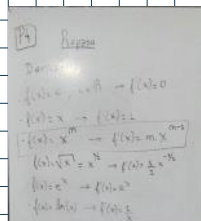 P4 Repaso
Deriv
f(x)= → f'(x)=0
f(x)=x → f'(x)=1
f(x)= x^m → f'(x)= m x^{m-1}
f(x)=√x = x^{1/2} → f'(x)= 1/2 x^{-1/2}
f(x)=e^x → f'(x)=e^x
f(x)= ln(x) → f'(x)=